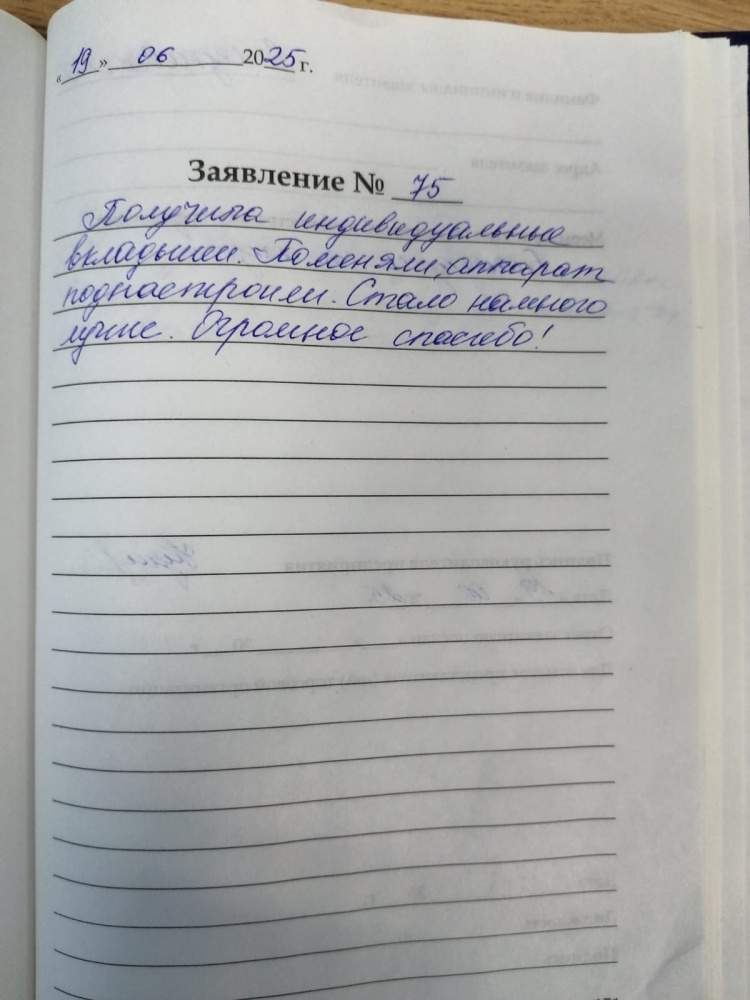 «19» 06 2025 г.
Заявление № 75
Получила индивидуальные
вкладыши. Поменяли, аппарат
поднастроили. Стало намного
лучше. Огромное спасибо!